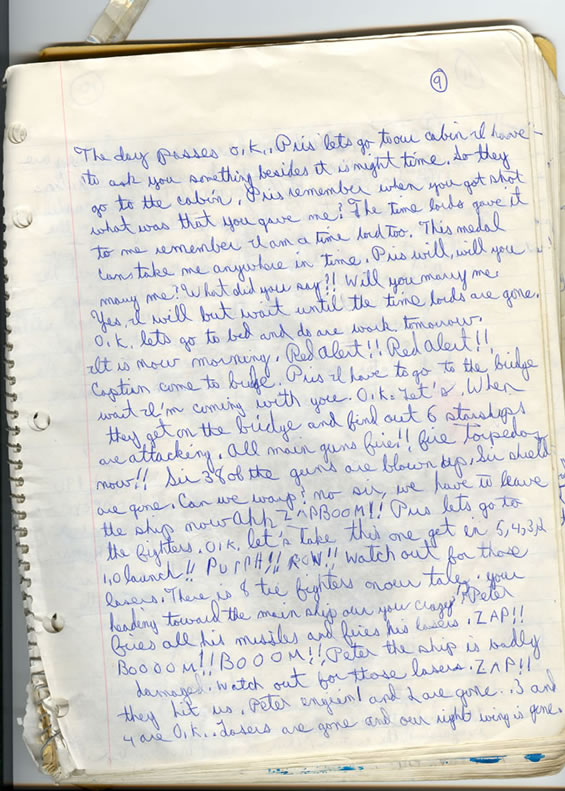 9
The day passes O.K.. Pris lets go to our cabin I have
to ask you something besides it is night time. So they
go to the cabin. Pris remember when you got shot
what was that you gave me? The time lords gave it
to me remember I am a time lord too. This medal
can take me anywhere in time. Pris will, will you
marry me? What did you say?! Will you marry me
Yes, I will but wait until the time lords are gone.
O.K. lets go to bed and do are work tomorrow.
It is now morning. Red Alert!! Red Alert!!
Captain come to bridge. Pris I have to go to the bridge
wait I'm coming with you. O.K. let's. When
they get on the bridge and find out 6 starships
are attacking. All main guns fire!! fire Torpedoes
now!! Sir 38 of the guns are blown up. Sir shields
are gone. Can we warp? no sir, we have to leave
the ship now Ahh ZAPBOOM!! Pris lets go to
the fighters. O.K. let's take this one get in 5,4,3,2
1,0 launch!! PURRH!! ROW!! Watch out for those
lasers. There is 8 tie fighters on our tale. your
heading toward the main ship our you crazy? Peter
fires all his missles and fires his lasers. ZAP!!
BOOOOM!! BOOOM!! Peter the ship is badly
damaged. Watch out for those lasers. ZAP!!
they hit us. Peter engin 1 and 2 are gone. 3 and
4 are O.K.. Lasers are gone and our right wing is gone.